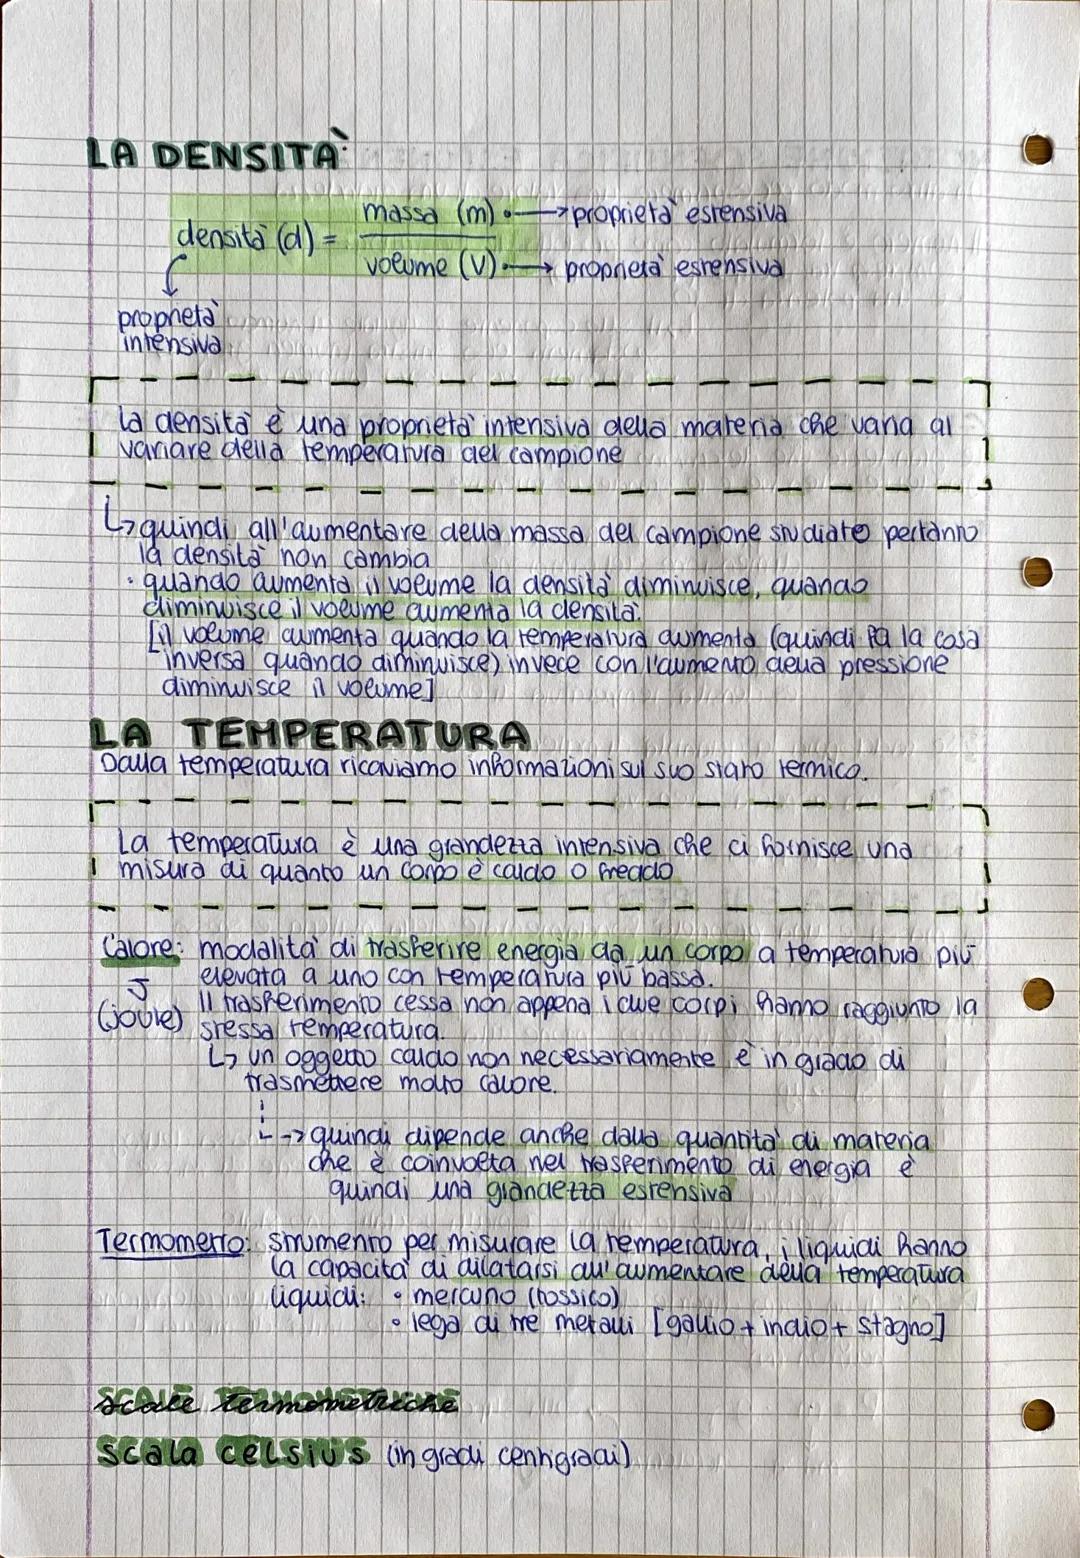 LA DENSITÀ
densità (d) = massa (m) → proprietà estensiva
volume (V) → proprietà estensiva
proprietà
intensiva
la densità è una proprietà intensiva della materia che varia al
variare della temperatura del campione
↳ quindi all'aumentare della massa del campione studiato pertanto
la densità non cambia
• quando aumenta il volume la densità diminuisce, quando
diminuisce il volume aumenta la densità.
[il volume aumenta quando la temperatura aumenta (quindi fa la cosa
inversa quando diminuisce) invece con l'aumento della pressione
diminuisce il volume]
LA TEMPERATURA
Dalla temperatura ricaviamo informazioni sul suo stato termico.
La temperatura è una grandezza intensiva che ci fornisce una
misura di quanto un corpo è caldo o freddo
Calore: modalità di trasferire energia da un corpo a temperatura più
elevata a uno con temperatura più bassa.
(joule) Il trasferimento cessa non appena i due corpi hanno raggiunto la
stessa temperatura.
↳ un oggetto caldo non necessariamente è in grado di
trasmettere molto calore.
→ quindi dipende anche dalla quantità di materia
che è coinvolta nel trasferimento di energia è
quindi una grandezza estensiva
Termometro: strumento per misurare la temperatura, i liquidi hanno
la capacità di dilatarsi all'aumentare della temperatura
liquidi: • mercurio (tossico)
• lega di tre metalli [gallio + indio + stagno]
SCALE TERMOMETRICHE
SCala CELSIUS (in gradi centigradi)